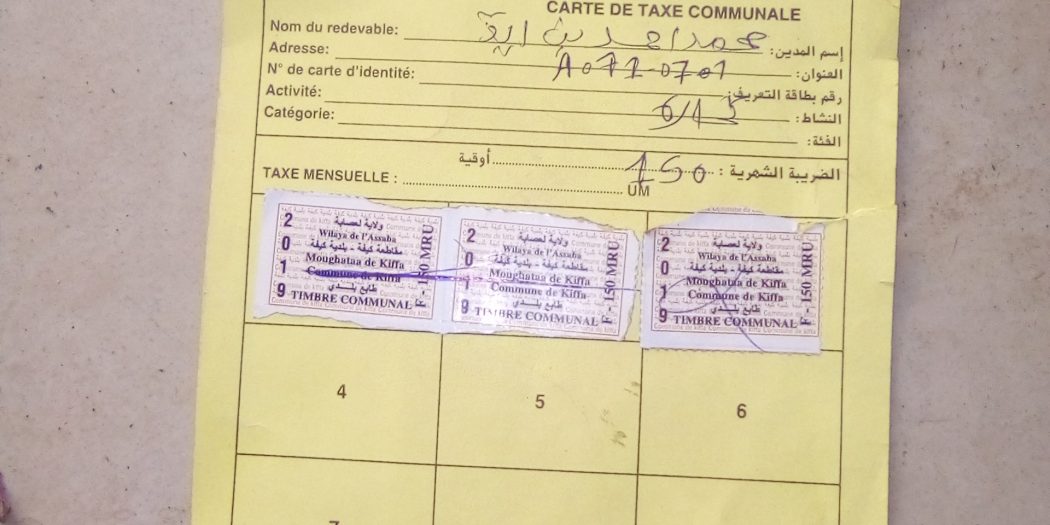 CARTE DE TAXE COMMUNALE
Nom du redevable: محمد احمد بن :إسم المدين
Adresse: A071-0701 العنوان:
N° de carte d'identité: رقم بطاقة التعريف:
Activité: 6/15 النشاط:
Catégorie: الفئة:
TAXE MENSUELLE : UM أوقية 150 الضريبة الشهرية :
2019
ولاية لعصابة
Wilaya de l'Assaba
مقاطعة كيفة - بلدية كيفة
Moughataa de Kiffa
Commune de Kiffa
طابع بلدي
TIMBRE COMMUNAL
F - 150 MRU
2019
ولاية لعصابة
Wilaya de l'Assaba
مقاطعة كيفة - بلدية كيفة
Moughataa de Kiffa
Commune de Kiffa
طابع بلدي
TIMBRE COMMUNAL
F - 150 MRU
2019
ولاية لعصابة
Wilaya de l'Assaba
مقاطعة كيفة - بلدية كيفة
Moughataa de Kiffa
Commune de Kiffa
طابع بلدي
TIMBRE COMMUNAL
F - 150 MRU
4 5 6
7